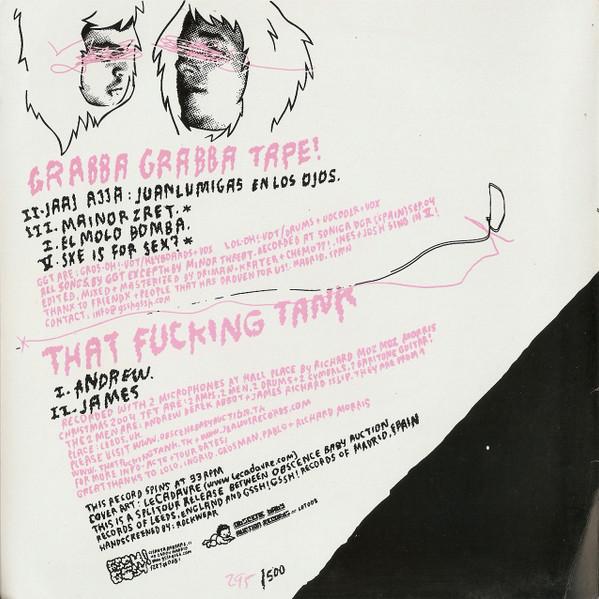 GRABBA GRABBA TAPE!
II-JAAJ AJJA: JUANLUMIGAS EN LOS OJOS.
III. MAINOR ZRET.*
I. EL MOLO BOMBA.
V. SXE IS FOR SEX?*
GGT ARE: GROS-OH!-VOT/KEYBOARDS+VOX LOL-OH!-VOT/DRUMS+VOCODER+VOX
ALL SONGS BY GGT EXCEPT III BY MINOR THREAT. RECORDED AT SONICA DGR (SPAIN) SEP.04
EDITED, MIXED + MASTERIZED BY DRIMAN, KRATER + CHEMO77!. INES + JOSH SING IN V!
THANX TO FRIENDX + PEOPLE THAT HAS DROVEN FOR US!. MADRID. SPAIN
CONTACT: INFO@GSSHGSSH.COM
THAT FUCKING TANK
I. ANDREW.
II. JAMES
RECORDED WITH 2 MICROPHONES AT HALL PLACE BY RICHARD MOZ MOZ MORRIS
CHRISTMAS 2004. TFT ARE: 2 AMPS, 2 MEN, 2 DRUMS + 2 CYMBALS, 1 BARITONE GUITAR!
THE 2 MEN ARE: ANDREW DEREK ABBOT + JAMES RICHARD ISLIP. THEY ARE FROM 1
PLACE: LEEDS, UK.
PLEASE VISIT WWW.OBSCENEBABYAUCTION.TK
FOR MORE INFO-AC-TS + TOUR DATES!
GREAT THANKS TO LOLO, INGRID, GROSMAN, PABLO + RICHARD MORRIS
THIS RECORD SPINS AT 33 RPM
COVER ART: LECADAVRE (WWW.LECADAVRE.COM)
THIS IS A SPLITOUR RELEASE BETWEEN OBSCENE BABY AUCTION
RECORDS OF LEEDS, ENGLAND AND GSSH! GSSH! RECORDS OF MADRID, SPAIN
HANDSCREENED BY: ROCKWEAR
OBSCENE BABY
AUCTION RECORDS
295 /500